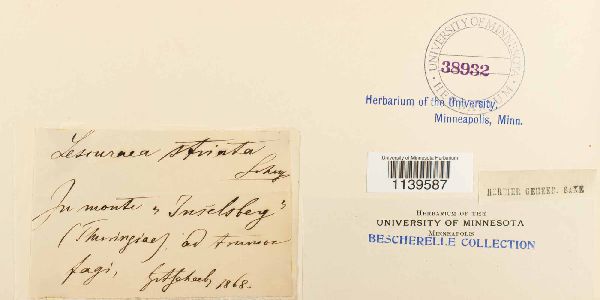 UNIVERSITY OF MINNESOTA
38932
HERBARIUM
Herbarium of the University,
Minneapolis, Minn.
Lescuraea striata
Schig
In monte „Inselsberg"
(Thuringiae) ad truncos
fagi, 1868.
University of Minnesota Herbarium
1139587
HERBIER GENER
HERBARIUM OF THE
UNIVERSITY OF MINNESOTA
MINNEAPOLIS
BESCHERELLE COLLECTION